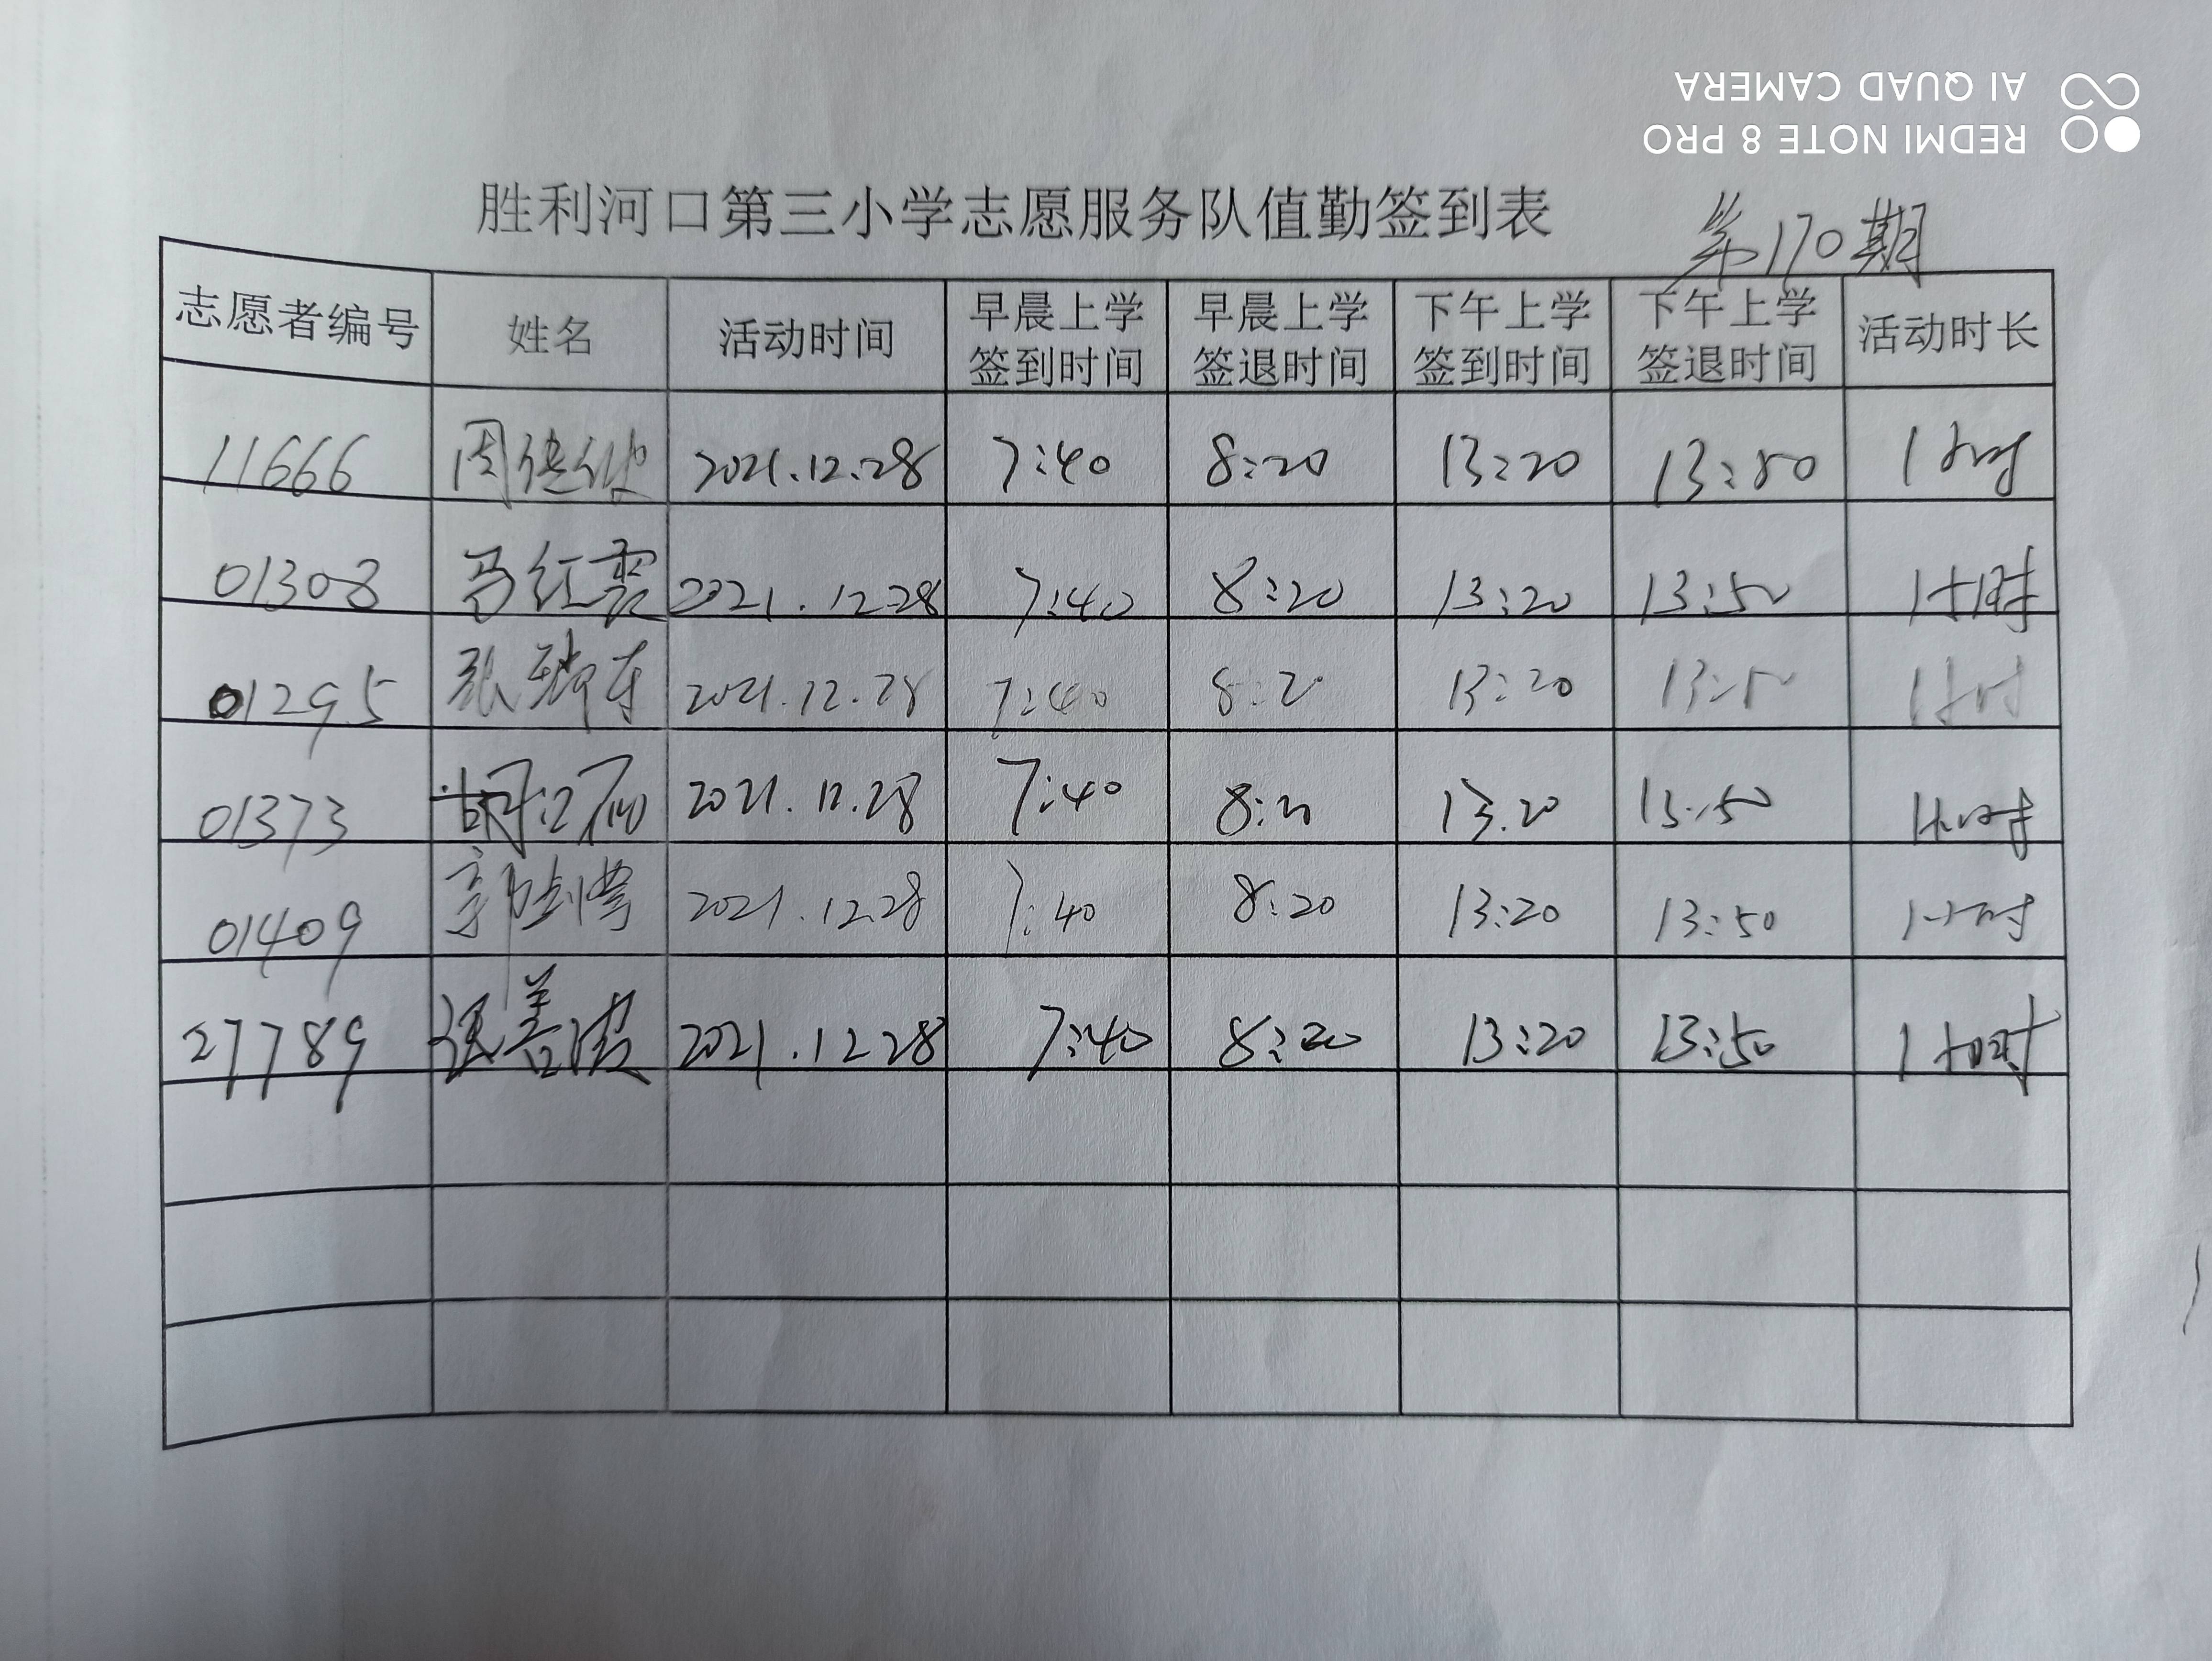 AI QUAD CAMERA
REDMI NOTE 8 PRO
胜利河口第三小学志愿服务队值勤签到表
第170期
志愿者编号 姓名 活动时间 早晨上学签到时间 早晨上学签退时间 下午上学签到时间 下午上学签退时间 活动时长
11666 周 2021.12.28 7:40 8:20 13:20 13:50 1小时
01308 马红霞 2021.12.28 7:40 8:20 13:20 13:50 1小时
01295 张 2021.12.28 7:40 8:20 13:20 13:50 1小时
01373 胡江 2021.12.28 7:40 8:20 13.20 13:50 1小时
01409 郭剑 2021.12.28 7:40 8:20 13:20 13:50 1小时
27789 张善波 2021.12 28 7:40 8:20 13:20 13:50 1小时